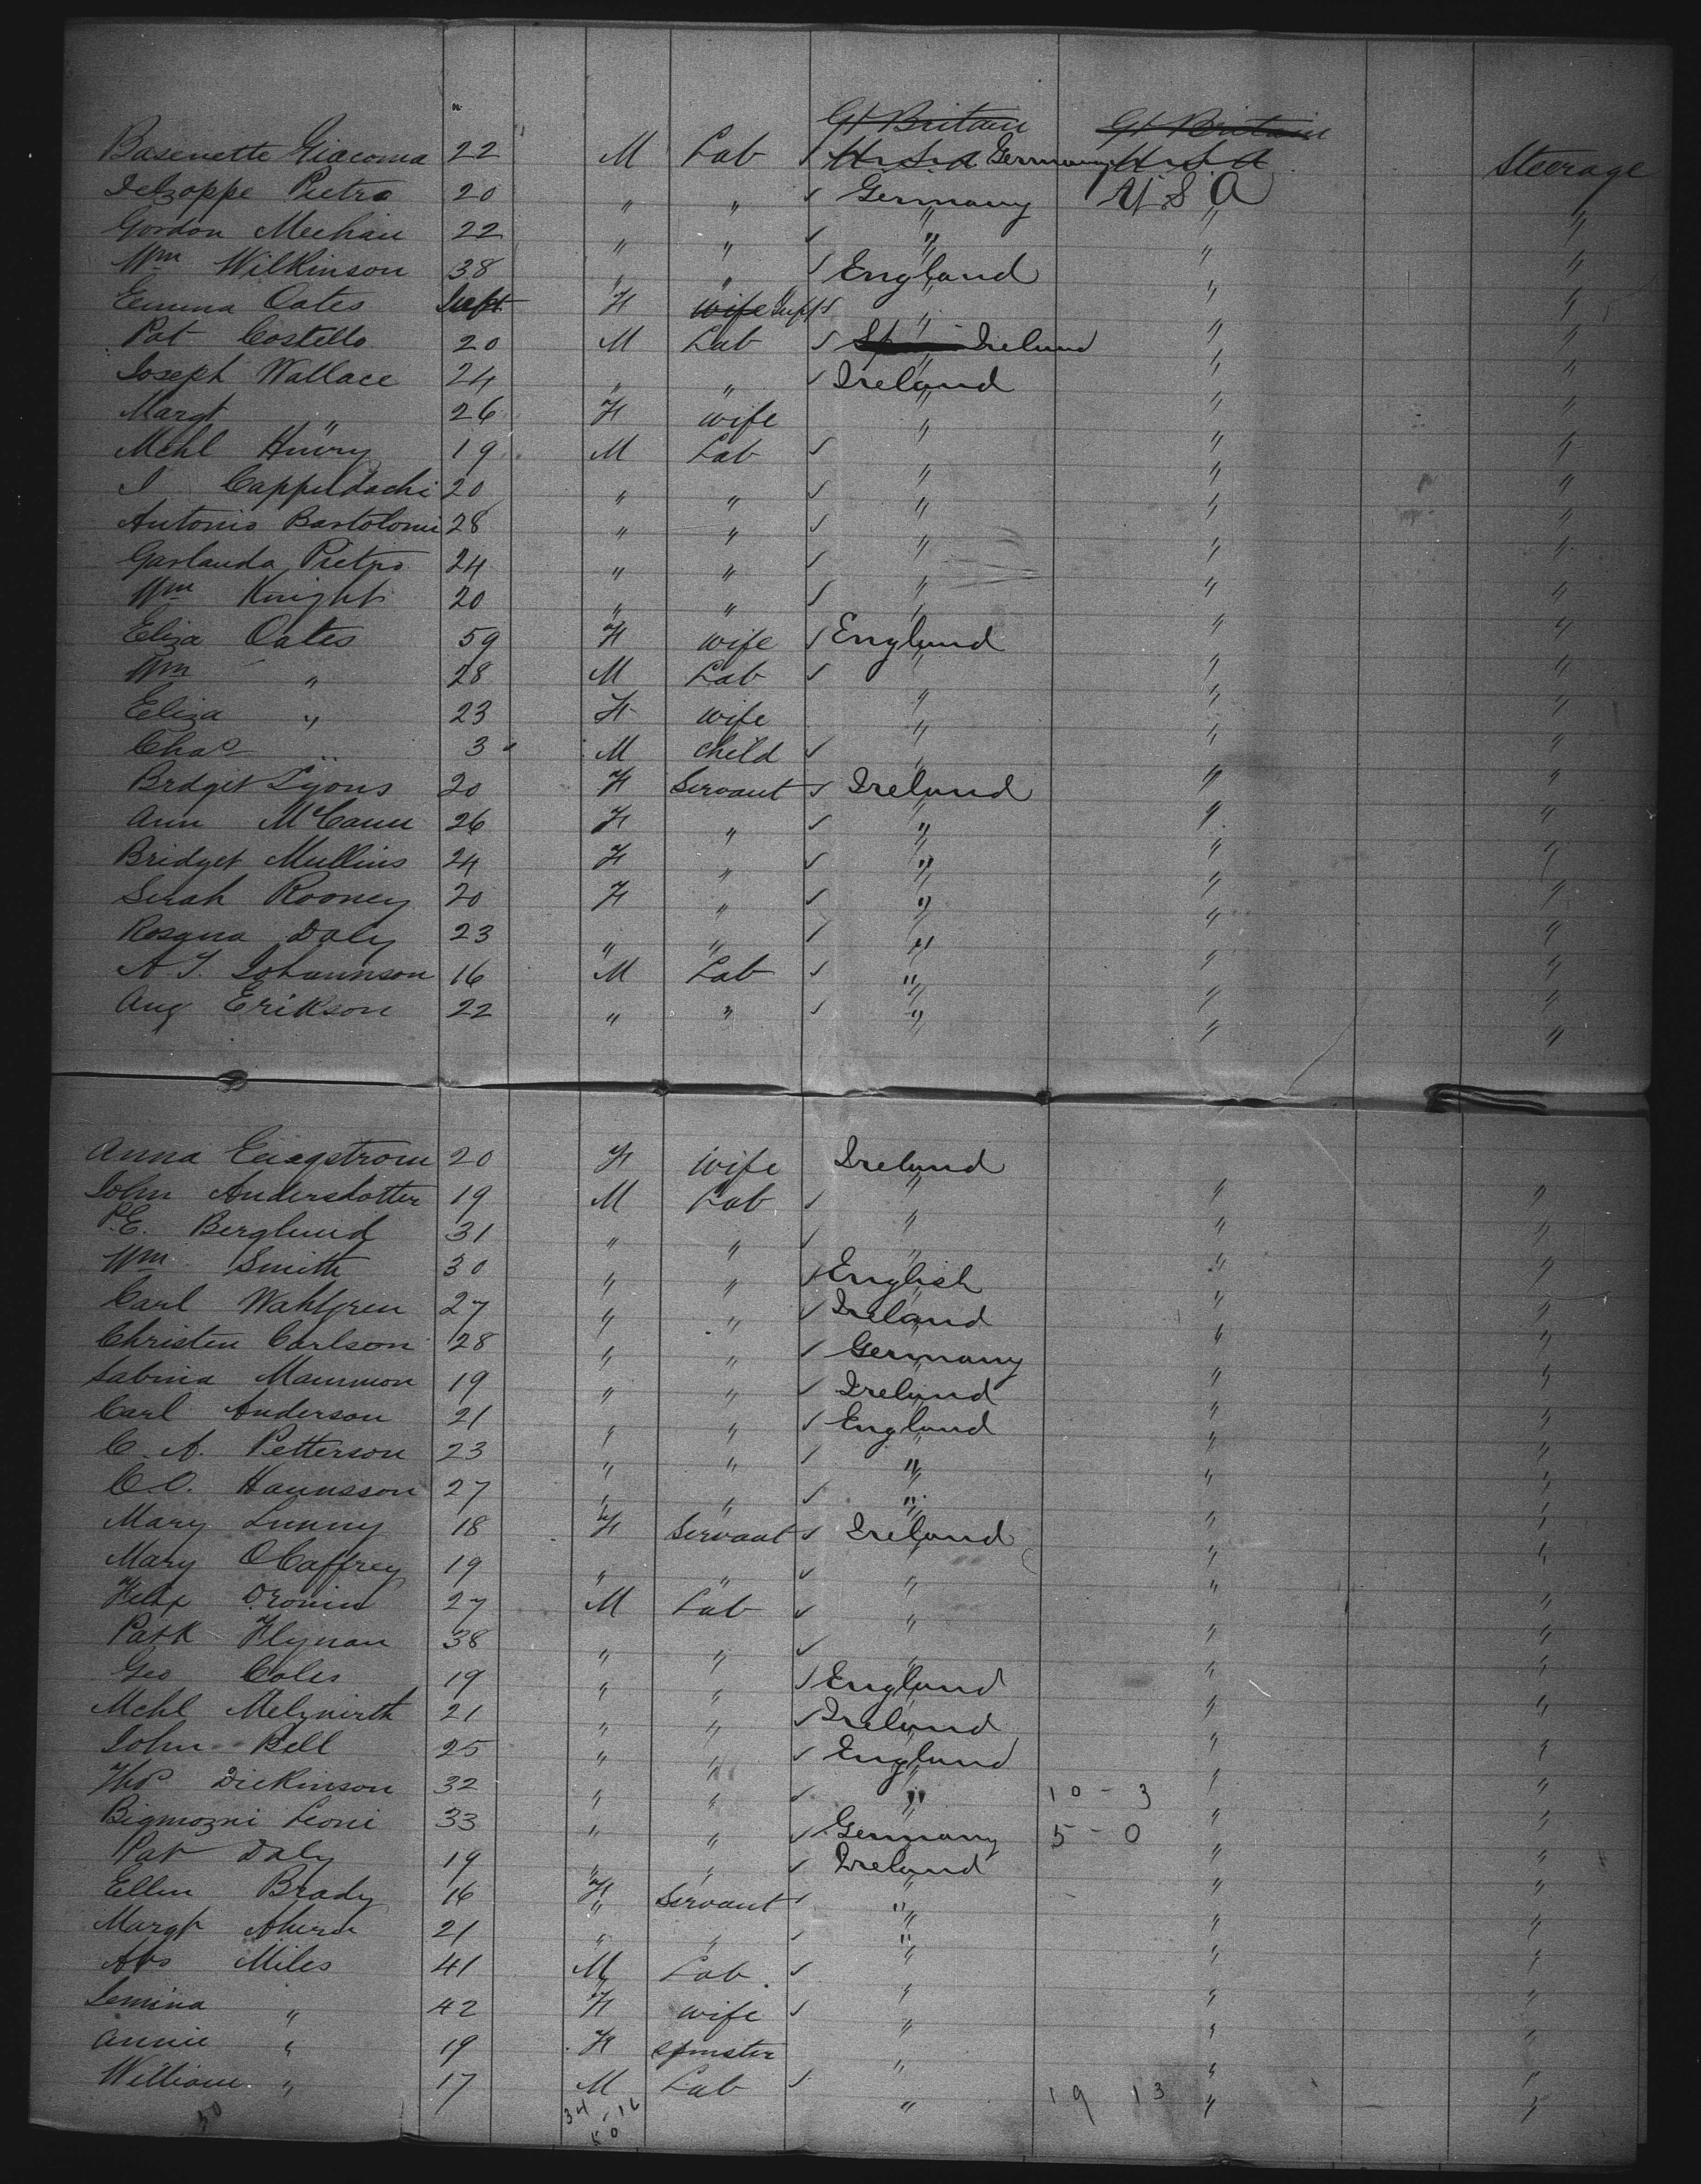 Gt Britain Gt Britain
Basenette Giacoma 22 M Lab U.S.A Germany U.S.A Steerage
Delzoppe Pietro 20 " " Germany U S A "
Gordon Meehan 22 " " " " "
Wm Wilkinson 38 " " England " "
Emma Oates Inft F wife Inft " " "
Pat Costello 20 M Lab Ireland " "
Joseph Wallace 24 " " Ireland " "
Margt " 26 F wife " " "
Mchl Henry 19 M Lab " " "
J Cappeldachi 20 " " " " "
Antonio Bartolomi 28 " " " " "
Garlanda Pietro 24 " " " " "
Wm Knight 20 " " " " "
Eliza Oates 59 F wife England " "
Wm " 28 M Lab " " "
Eliza " 23 F wife " " "
Chas " 3 M child " " "
Brdget Lyons 20 F Servant Ireland " "
Ann McCann 26 F " " " "
Bridget Mullins 24 F " " " "
Serah Rooney 20 F " " " "
Rosana Daly 23 " " " " "
A J. Johannson 16 M Lab " " "
Aug Erikson 22 " " " " "
Anna Engstrom 20 F wife Ireland " "
John Andersdotter 19 M Lab " " "
P.E. Berglund 31 " " " " "
Wm Smith 30 " " English " "
Carl Wahlgren 27 " " Ireland " "
Christen Carlson 28 " " Germany " "
Sabina Mammon 19 " " Ireland " "
Carl Anderson 21 " " England " "
C. A. Petterson 23 " " " " "
C O. Hannsson 27 " " " " "
Mary Lunny 18 F Servant Ireland " "
Mary OCaffrey 19 " " " " "
Felix Cronin 27 M Lab " " "
Patk Flynan 38 " " " " "
Geo Coles 19 " " England " "
Mchl 21 " " Ireland " "
John Bell 25 " " England " "
Thos Dickinson 32 " " " 10 - 3 " "
Leoni 33 " " Germany 5 - 0 " "
Pat Daly 19 " " Ireland " "
Ellen Brady 16 F Servant " " "
Margt Ahern 21 " " " " "
Abs Miles 41 M Lab " " "
Jemina " 42 F wife " " "
Annie " 19 F spinster " " "
William " 17 M Lab " 19 13 " "
50 34 - 16
50